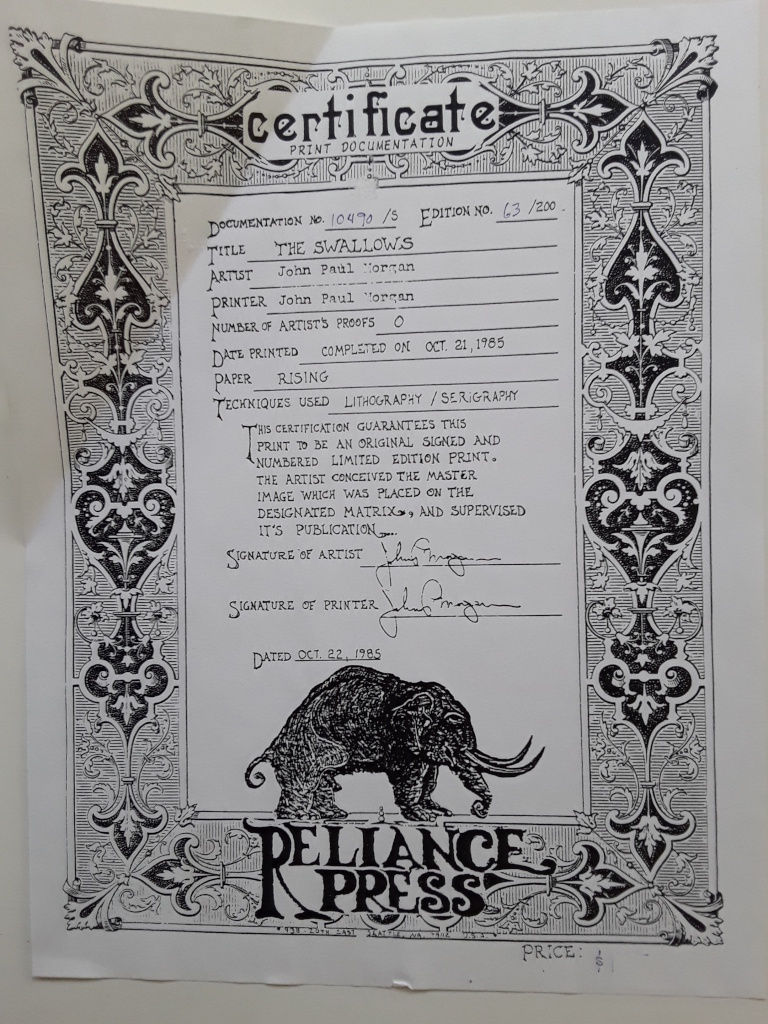 certificate
PRINT DOCUMENTATION
DOCUMENTATION NO. 10490 /S EDITION NO. 63 /200.
TITLE THE SWALLOWS
ARTIST John Paul Morgan
PRINTER John Paul Morgan
NUMBER OF ARTIST'S PROOFS 0
DATE PRINTED COMPLETED ON OCT. 21, 1985
PAPER RISING
TECHNIQUES USED LITHOGRAPHY / SERIGRAPHY
THIS CERTIFICATION GUARANTEES THIS
PRINT TO BE AN ORIGINAL SIGNED AND
NUMBERED LIMITED EDITION PRINT.
THE ARTIST CONCEIVED THE MASTER
IMAGE WHICH WAS PLACED ON THE
DESIGNATED MATRIX, AND SUPERVISED
IT'S PUBLICATION
SIGNATURE OF ARTIST John P Morgan
SIGNATURE OF PRINTER John P Morgan
DATED OCT. 22, 1985
RELIANCE
PRESS
20TH EAST SEATTLE, WA. U.S.A.
PRICE: $